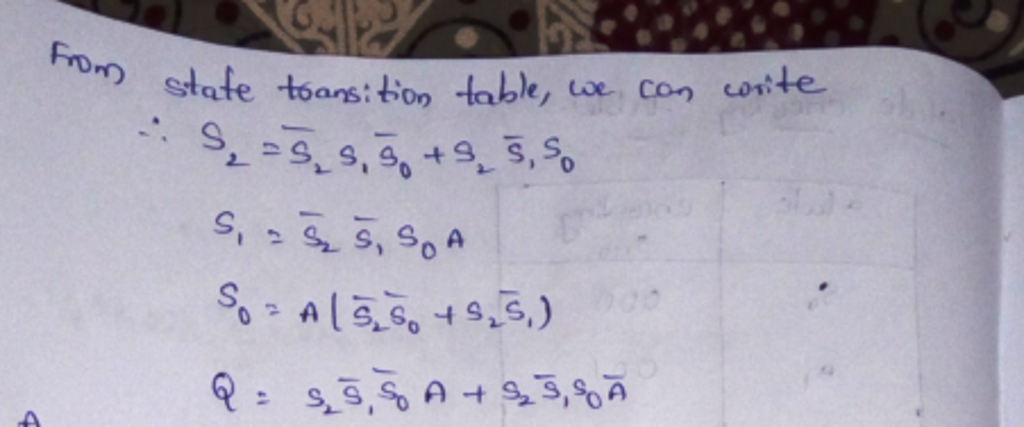 From state transition table, we can write
∴ S₂ = S̅₂ S₁ S̅₀ + S₂ S̅₁ S₀
S₁ = S̅₂ S̅₁ S₀ A
S₀ = A(S̅₂S̅₀ + S₂S̅₁)
Q = S₂S̅₁S̅₀ A + S₂S̅₁S₀A̅
A